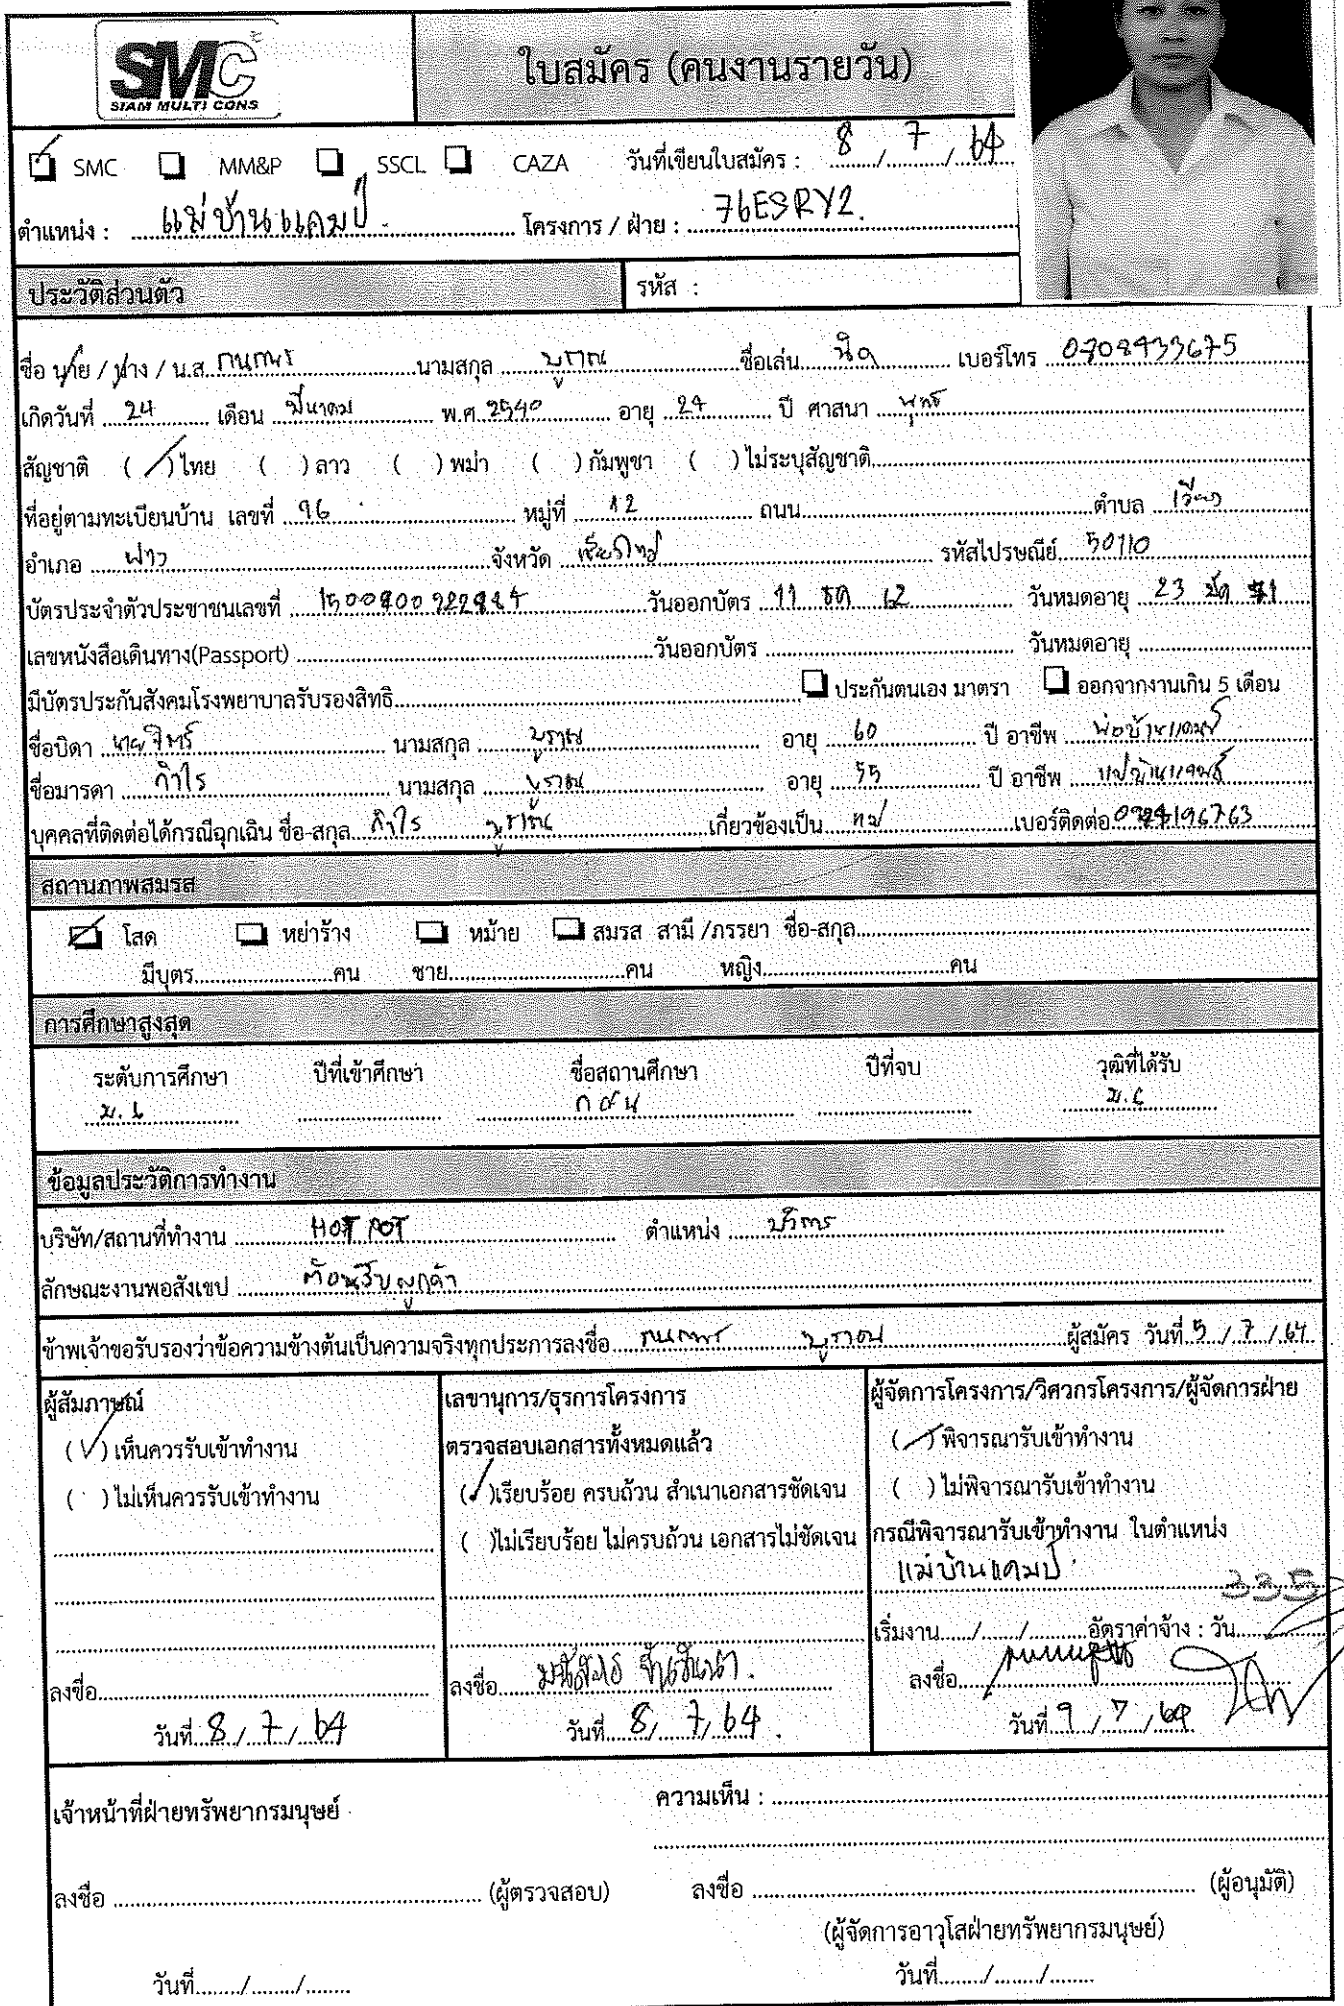 SMC
SIAM MULTI CONS
ใบสมัคร (คนงานรายวัน)
SMC MM&P SSCL CAZA วันที่เขียนใบสมัคร : 8 / 7 / 64
ตำแหน่ง : แม่บ้านแคมป์ โครงการ / ฝ่าย : 76ESRY2.
ประวัติส่วนตัว รหัส :
ชื่อ นาย / นาง / น.ส. นามสกุล บูราณ ชื่อเล่น นิด เบอร์โทร
เกิดวันที่ 24 เดือน มีนาคม พ.ศ. 2540 อายุ 24 ปี ศาสนา พุทธ
สัญชาติ ( / ) ไทย ( ) ลาว ( ) พม่า ( ) กัมพูชา ( ) ไม่ระบุสัญชาติ
ที่อยู่ตามทะเบียนบ้าน เลขที่ 96 หมู่ที่ 12 ถนน ตำบล เวียง
อำเภอ ฝาง จังหวัด เชียงใหม่ รหัสไปรษณีย์ 50110
บัตรประจำตัวประชาชนเลขที่ วันออกบัตร 11 62 วันหมดอายุ 23 71
เลขหนังสือเดินทาง(Passport) วันออกบัตร วันหมดอายุ
มีบัตรประกันสังคมโรงพยาบาลรับรองสิทธิ ประกันตนเอง มาตรา ออกจากงานเกิน 5 เดือน
ชื่อบิดา นามสกุล บูราณ อายุ 60 ปี อาชีพ พ่อบ้านแคมป์
ชื่อมารดา กำไร นามสกุล บูราณ อายุ 55 ปี อาชีพ แม่บ้านแคมป์
บุคคลที่ติดต่อได้กรณีฉุกเฉิน ชื่อ-สกุล กำไร บูราณ เกี่ยวข้องเป็น แม่ เบอร์ติดต่อ
สถานภาพสมรส
โสด หย่าร้าง หม้าย สมรส สามี /ภรรยา ชื่อ-สกุล
มีบุตร คน ชาย คน หญิง คน
การศึกษาสูงสุด
ระดับการศึกษา ปีที่เข้าศึกษา ชื่อสถานศึกษา ปีที่จบ วุฒิที่ได้รับ
ม.6 กศน ม.6
ข้อมูลประวัติการทำงาน
บริษัท/สถานที่ทำงาน HOT POT ตำแหน่ง บริการ
ลักษณะงานพอสังเขป ต้อนรับลูกค้า
ข้าพเจ้าขอรับรองว่าข้อความข้างต้นเป็นความจริงทุกประการลงชื่อ บูราณ ผู้สมัคร วันที่ / 7 / 64
ผู้สัมภาษณ์
(✓) เห็นควรรับเข้าทำงาน
( ) ไม่เห็นควรรับเข้าทำงาน
ลงชื่อ
วันที่ 8 / 7 / 64
เลขานุการ/ธุรการโครงการ
ตรวจสอบเอกสารทั้งหมดแล้ว
(✓)เรียบร้อย ครบถ้วน สำเนาเอกสารชัดเจน
( )ไม่เรียบร้อย ไม่ครบถ้วน เอกสารไม่ชัดเจน
ลงชื่อ
วันที่ 8 / 7 / 64
ผู้จัดการโครงการ/วิศวกรโครงการ/ผู้จัดการฝ่าย
( / ) พิจารณารับเข้าทำงาน
( ) ไม่พิจารณารับเข้าทำงาน
กรณีพิจารณารับเข้าทำงาน ในตำแหน่ง
แม่บ้านแคมป์
เริ่มงาน / / อัตราค่าจ้าง : วัน 335
ลงชื่อ
วันที่ 9 / 7 / 64
เจ้าหน้าที่ฝ่ายทรัพยากรมนุษย์ ความเห็น :
ลงชื่อ (ผู้ตรวจสอบ) ลงชื่อ (ผู้อนุมัติ)
(ผู้จัดการอาวุโสฝ่ายทรัพยากรมนุษย์)
วันที่ / / วันที่ / /